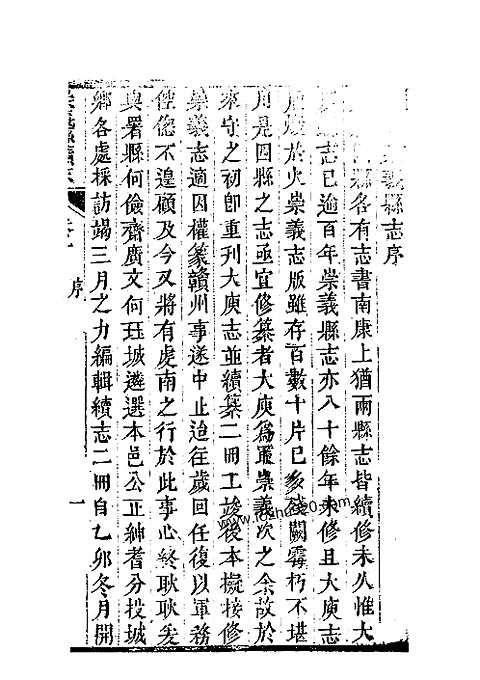 義縣志序
縣各有志書南康上猶兩縣志皆續修未久惟大
志已逾百年崇義縣志亦八十餘年未修且大庾志
於火崇義志版雖存百數十片已多殘闕霉朽不堪
用是四縣之志亟宜修纂者大庾為最崇義次之余故於
來守之初卽重刊大庾志並續纂二冊工竣後本擬接修
崇義志適因權篆贛州事遂中止迨往歲回任復以軍務
倥傯不遑顧及今又將有虔南之行於此事心終耿耿爰
與署縣何儉齋廣文何珏城遴選本邑公正紳耆分投城
鄉各處採訪竭三月之力編輯續志二冊自乙卯冬月開
序
一